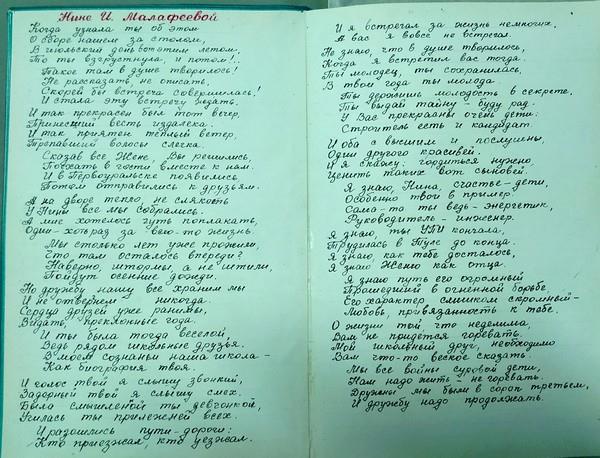 Нине И. Малафеевой
Когда узнала ты об этом
О сборе нашем за столом,
В июльский день богатым летом.
То ты взгрустнула, и потом!..
Такое там в душе творилось!
Не рассказать, не описать.
Скорей бы встреча совершилась!
И стала эту встречу ждать.
И так прекрасен был тот вечер,
Принесший весть издалека.
И так приятен тёплый ветер,
Трепавший волосы слегка.
Сказав все Жене, Вы решились,
Поехать в гости вместе к нам.
И в Первоуральске появились
Потом отправились к друзьям.
А на дворе тепло, не слякоть
У Нины все мы собрались.
А мне хотелось чуть поплакать,
Один-хотьраз за-всю-то жизнь.
Мы столько лет уже прожили,
Что там осталось впереди?
Наверно, штормы, а не штили,
Пойдут осенние дожди.
Но дружбу нашу все храним мы
И не отвергнем никогда.
Сердца друзей уже ранимы,
Видать, преклонные года.
И ты была тогда веселой,
Ведь рядом школьные друзья.
В моем сознаньи наша школа-
Как биография твоя.
И голос твой я слышу звонкий,
Задорный твой я слышу смех.
Была смышленой ты девчонкой,
Училась ты прилежней всех.
И разошлись пути-дороги:
Кто приезжал, кто уезжал.
И я встречал за жизнь немногих,
А вас я вовсе не встречал.
Не знаю, что в душе творилось,
Когда я встретил вас тогда.
Ты молодец, ты сохранилась,
В твои года ты молода.
Ты держишь молодость в секрете,
Ты выдай тайну - буду рад.
У Вас прекрасны очень дети:
Строитель есть и кандидат.
И оба с высшим и послушны,
Один другого красивей.
И я скажу: гордиться нужно,
Ценить таких вот сыновей.
Я знаю, Нина, счастье-дети,
Особенно твои в пример
Сама-то ты ведь-энергетик,
Руководитель-инженер.
Я знаю, ты УПИ кончала,
Трудилась в Туле до конца.
Я знаю, как тебе досталось,
Я знаю Женю как отца.
Я знаю путь его огромный
Прошедший в огненной борьбе.
Его характер слишком скромный-
Любовь, привязанность к тебе.
О жизни той, что неделима,
Вам не придется горевать.
Мой школьный друг, необходимо
Вам что-то веское сказать.
Мы все войны суровой дети,
Нам надо жить - не горевать.
Дружны мы были в сорок третьем,
И дружбу надо продолжать.